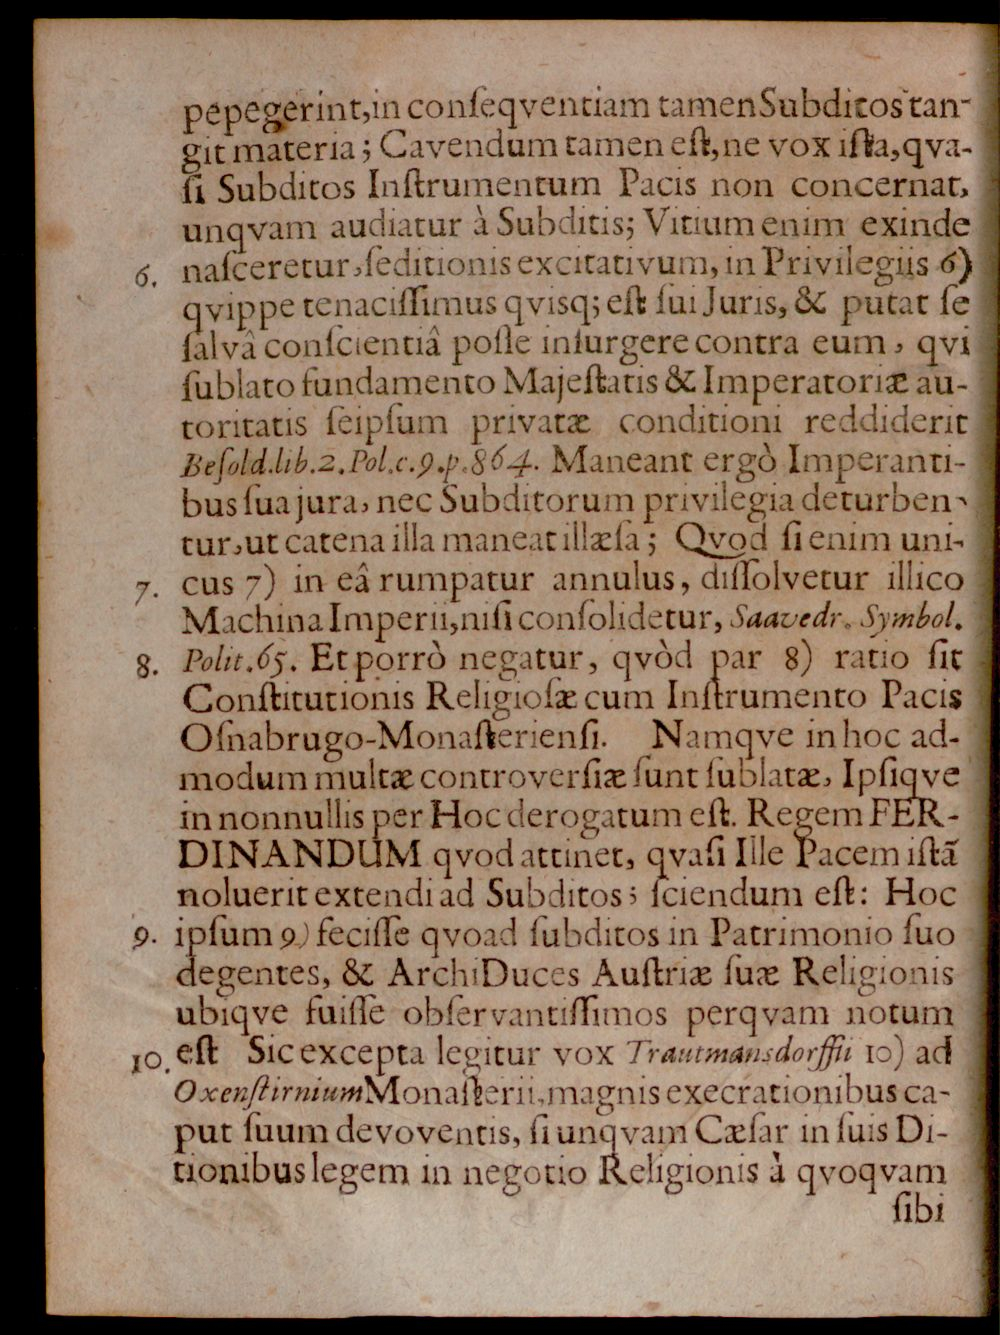 pepegerint, in conſeqventiam tamen Subditos tan-
git materia; Cavendum tamen eſt, ne vox iſta, qva-
ſi Subditos Inſtrumentum Pacis non concernat,
unqvam audiatur à Subditis; Vitium enim exinde
6. naſceretur, ſeditionis excitativum, in Privilegiis 6)
qvippe tenaciſſimus qvisq; eſt ſui Juris, & putat ſe
ſalvâ conſcientiâ poſſe inſurgere contra eum, qvi
ſublato fundamento Majeſtatis & Imperatoriæ au-
toritatis ſeipſum privatæ conditioni reddiderit
Beſold. lib. 2. Pol. c. 9. p. 864. Maneant ergò Imperanti-
bus ſua jura, nec Subditorum privilegia deturben-
tur, ut catena illa maneat illæſa; Qvod ſi enim uni-
7. cus 7) in eâ rumpatur annulus, diſſolvetur illico
Machina Imperii, niſi conſolidetur, Saavedr. Symbol.
8. Polit. 65. Et porrò negatur, qvòd par 8) ratio ſit
Conſtitutionis Religioſæ cum Inſtrumento Pacis
Oſnabrugo-Monaſterienſi. Namqve in hoc ad-
modum multæ controverſiæ ſunt ſublatæ, Ipſiqve
in nonnullis per Hoc derogatum eſt. Regem FER-
DINANDUM qvod attinet, qvaſi Ille Pacem iſtã
noluerit extendi ad Subditos; ſciendum eſt: Hoc
9. ipſum 9) feciſſe qvoad ſubditos in Patrimonio ſuo
degentes, & ArchiDuces Auſtriæ ſuæ Religionis
ubiqve fuiſſe obſervantiſſimos perqvam notum
10. eſt Sic excepta legitur vox Trautmansdorffii 10) ad
Oxenſtirnium Monaſterii, magnis execrationibus ca-
put ſuum devoventis, ſi unqvam Cæſar in ſuis Di-
tionibus legem in negotio Religionis à qvoqvam
ſibi